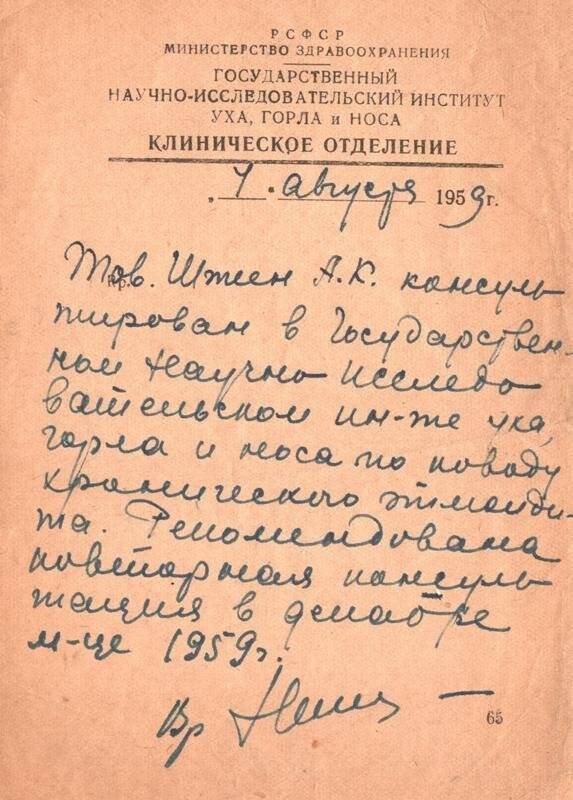 РСФСР
МИНИСТЕРСТВО ЗДРАВООХРАНЕНИЯ
ГОСУДАРСТВЕННЫЙ
НАУЧНО-ИССЛЕДОВАТЕЛЬСКИЙ ИНСТИТУТ
УХА, ГОРЛА и НОСА
КЛИНИЧЕСКОЕ ОТДЕЛЕНИЕ
августа 1959 г.
Тов. А.К. консуль
тирован в Государствен-
ном Научно Исследо
вательском ин-те уха,
горла и носа по поводу
хронического этмоиди-
та. Рекомендована
повторная консуль
тация в декабре
м-це 1959г.
Вр
65